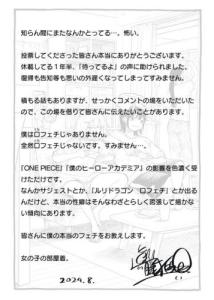 知らん間にまたなんかとってる…。怖い。
投票してくださった皆さん本当にありがとうございます。
休載してる1年半、「待ってるよ」の声に助けられました。
復帰も告知等も思いの外遅くなってしまってすみません。
積もる話もありますが、せっかくコメントの場をいただいた
ので、この場を借りて皆さんに伝えたいことがあります。
僕は口フェチじゃありません。
全然口フェチじゃないです。すみません…。
『ONE PIECE』『僕のヒーローアカデミア』の影響を色濃く受
けただけです。
なんかサジェストとか、「ルリドラゴン 口フェチ」とか出る
んだけど、本当の性癖はそんなわざとらしく誇張して描かな
い傾向にあります。
皆さんに僕の本当のフェチをお教えします。
女の子の部屋着。
2024.8.